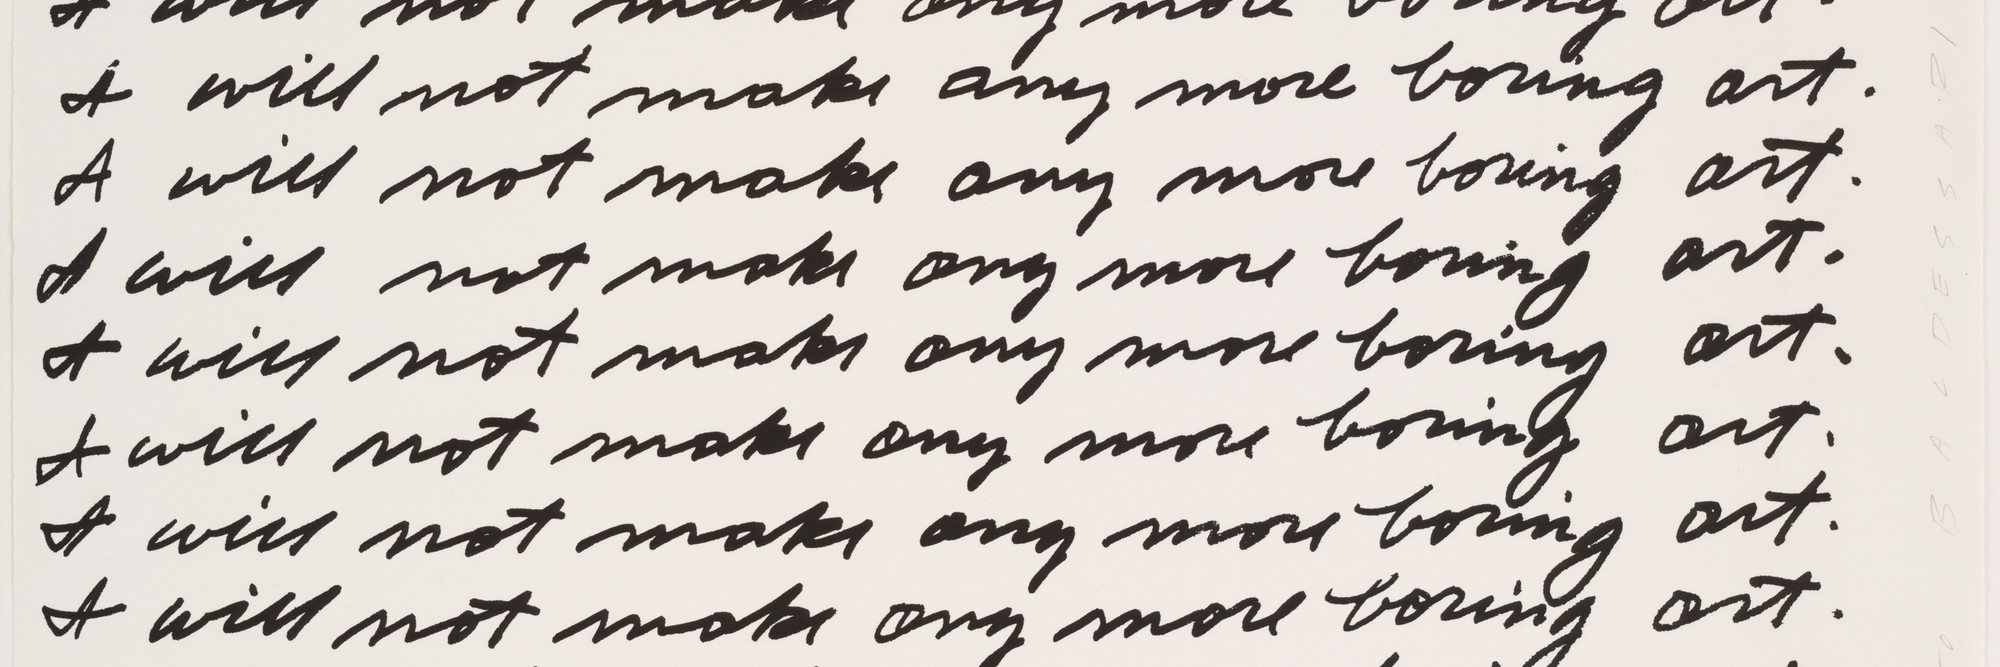 I will not make any more boring art.
I will not make any more boring art.
I will not make any more boring art.
I will not make any more boring art.
I will not make any more boring art.
I will not make any more boring art.
I will not make any more boring art.
I will not make any more boring art.
BALDESSARI